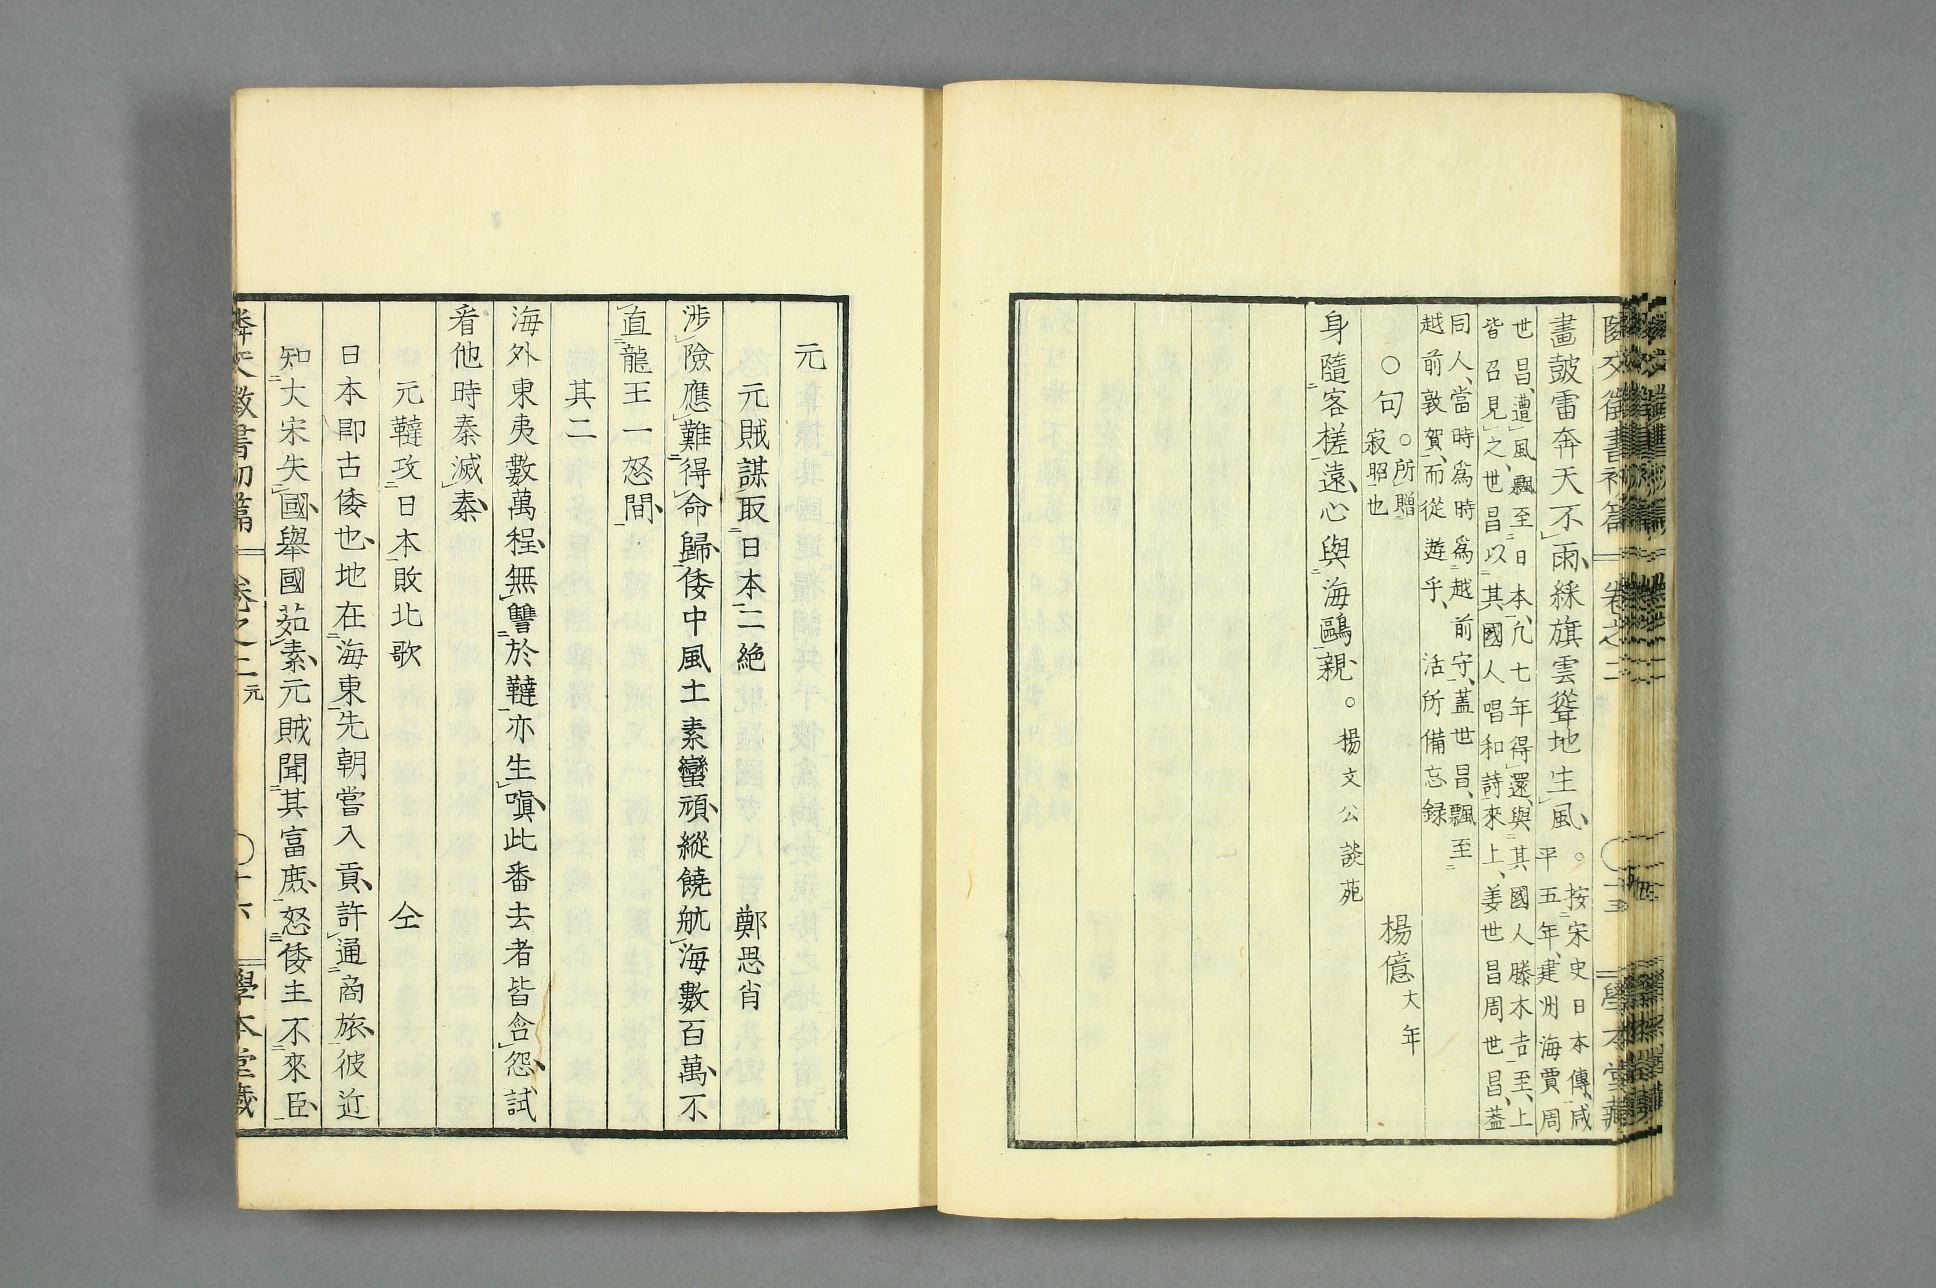 鄰交徵書初篇 卷之二 學本堂藏
畫鼓雷奔天不雨綵旗雲聳地生風。按宋史日本傳咸
平五年建州海賈周
世昌遭風飄至日本凡七年得還與其國人滕木吉至上
皆召見之世昌以其國人唱和詩來上姜世昌周世昌蓋
同人當時為時為越前守蓋世昌飄至
越前敦賀而從遊乎 活所備忘録
○句 ○所贈
寂照也 楊億大年
身隨客槎遠心與海鷗親。楊文公談苑
元
元賊謀取日本二絶 鄭思肖
涉險應難得命歸倭中風土素蠻頑縱饒航海數百萬不
直龍王一怒間
其二
海外東夷數萬程無讐於韃亦生嗔此番去者皆含怨試
看他時秦滅秦
元韃攻日本敗北歌 仝
日本即古倭也地在海東先朝嘗入貢許通商旅彼近
知大宋失國舉國茹素元賊聞其富庶怒倭主不來臣
鄰交徵書初篇 卷之二 元 〇十六 學本堂藏